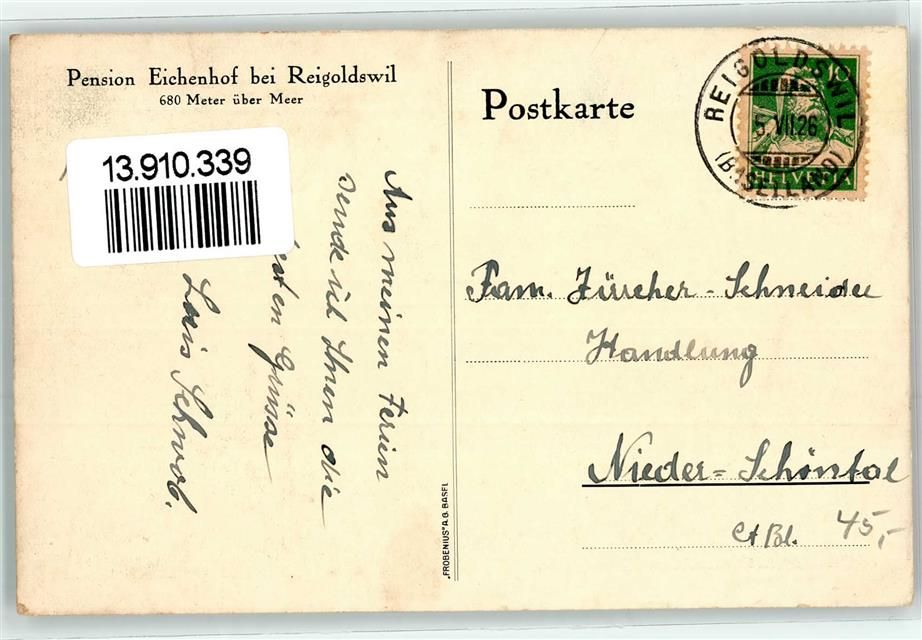 Pension Eichenhof bei Reigoldswil
680 Meter über Meer
13.910.339
Aus meinen Ferien
sende ich Ihnen die
besten Grüsse
Schwob.
"FROBENIUS" A.G. BASEL
Postkarte
REIGOLDSWIL
5.VII.26
(BASELLAND)
10
HELVETIA
Fam. Zürcher-Schneider
Handlung
Nieder-Schöntal
Ct Bl.
45,-